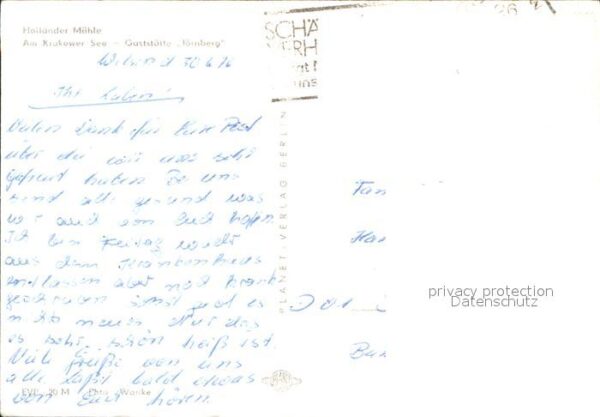 Holländer Mühle
Am Krakower See - Gaststätte
30.6.76
Ihr Lieben!
Vielen Dank für Eure Post
über die wir uns sehr
gefreut haben. Bei uns
sind alle gesund was
wir auch von Euch hoffen
Ich bin Freitag wieder
aus dem Krankenhaus
entlassen aber noch krank
geschrieben sonst gibt es
nichts neues. Nur das
es sehr schön heiß ist.
Viele Grüße von uns
alle laßt bald etwas
von Euch hören.
PLANET-VERLAG BERLIN
SCHÄ
ERH
Fam
Han
Dat
Bau
privacy protection
Datenschutz